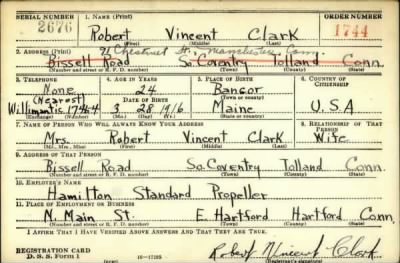 SERIAL NUMBER 1. NAME (Print) ORDER NUMBER
2676 Robert Vincent Clark 1744
(First) (Middle) (Last)
71 Chestnut St., Manchester, Conn.
2. ADDRESS (Print)
Bissell Road So. Coventry Tolland Conn.
(Number and street or R. F. D. number) (Town) (County) (State)
3. TELEPHONE 4. AGE IN YEARS 5. PLACE OF BIRTH 6. COUNTRY OF CITIZENSHIP
None 24 Bangor
(Nearest) DATE OF BIRTH (Town or county)
Willimantic 1744 3 28 1916 Maine U.S.A
(Exchange) (Number) (Mo.) (Day) (Yr.) (State or country)
7. NAME OF PERSON WHO WILL ALWAYS KNOW YOUR ADDRESS 8. RELATIONSHIP OF THAT PERSON
Mrs. Robert Vincent Clark Wife
(Mr., Mrs., Miss) (First) (Middle) (Last)
9. ADDRESS OF THAT PERSON
Bissell Road So. Coventry Tolland Conn.
(Number and street or R. F. D. number) (Town) (County) (State)
10. EMPLOYER'S NAME
Hamilton Standard Propeller
11. PLACE OF EMPLOYMENT OR BUSINESS
N. Main St. E. Hartford Hartford Conn.
(Number and street or R. F. D. number) (Town) (County) (State)
I AFFIRM THAT I HAVE VERIFIED ABOVE ANSWERS AND THAT THEY ARE TRUE.
REGISTRATION CARD
D. S. S. Form 1 16-17105 Robert Vincent Clark